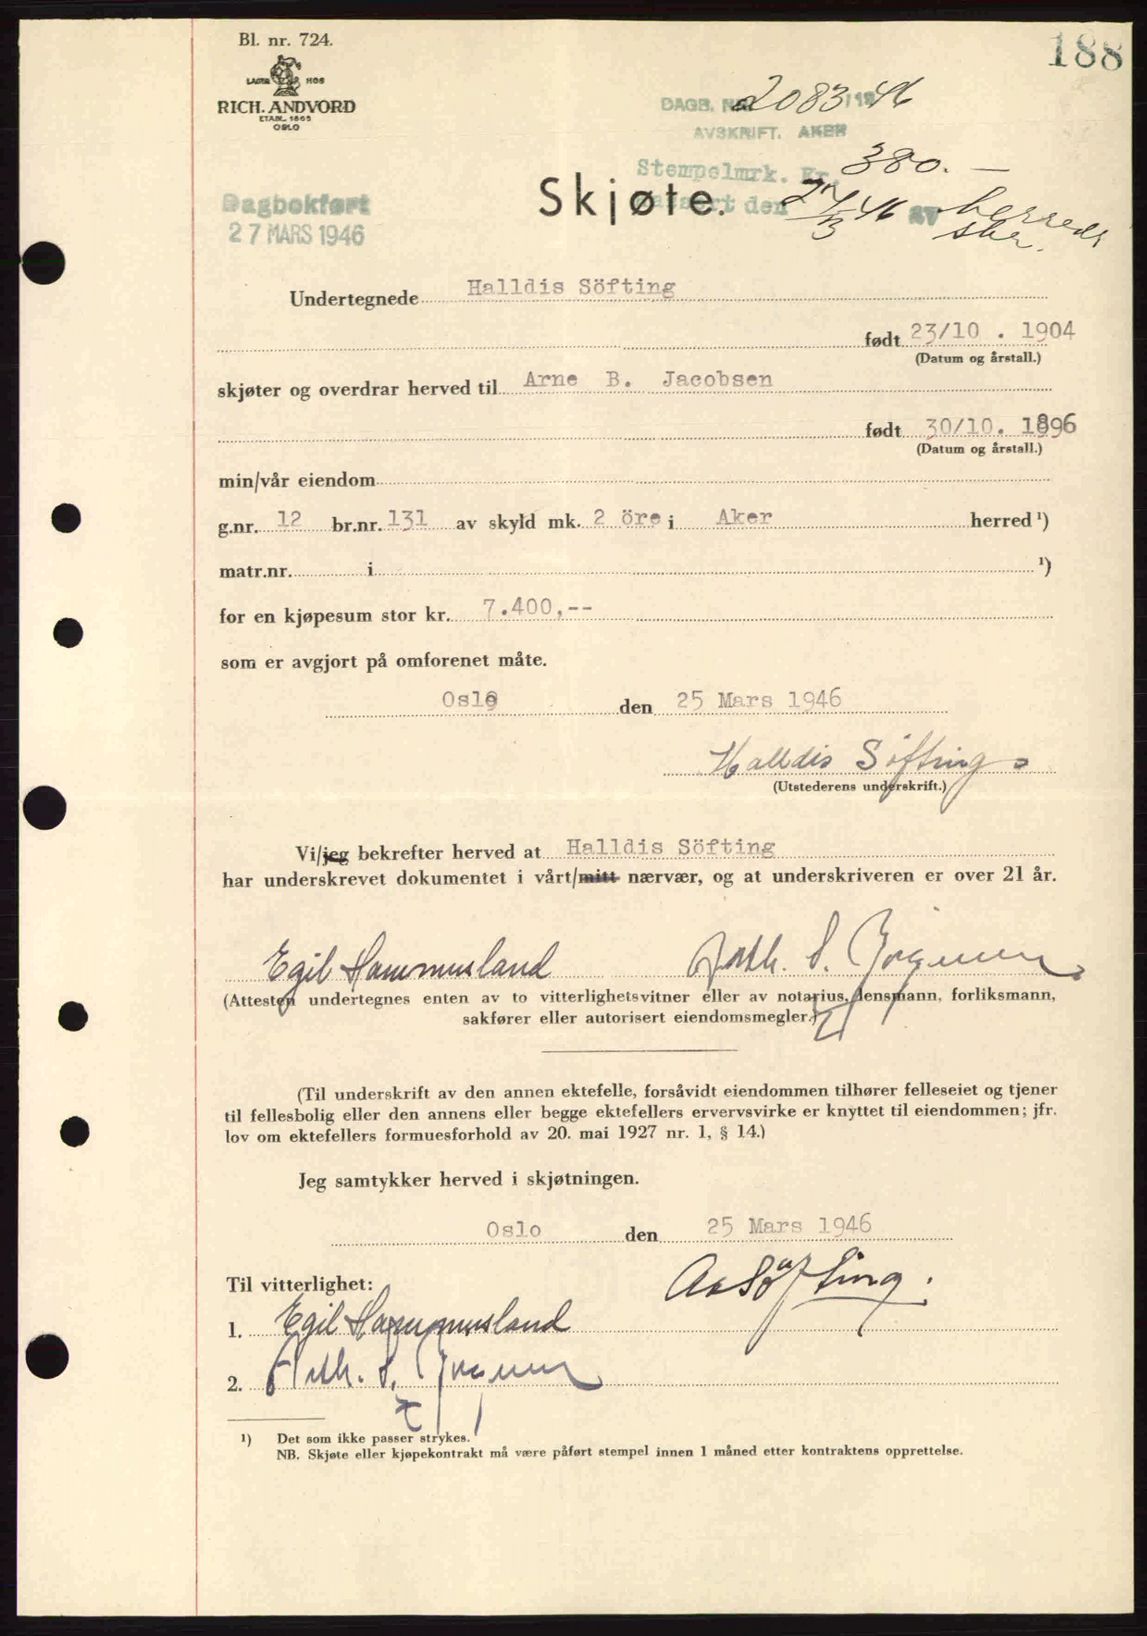 Bl. nr. 724.
188
LAGER HOS
RICH. ANDVORD
ETABL. 1865
OSLO
DAGB. NR. 2083/1946
AVSKRIFT. AKER
Stempelmrk. Kr. 380.—
Skjøte.
kassert den 27/3 46 av herreds
skr.
Dagbokført
27 MARS 1946
Undertegnede Halldis Söfting
født 23/10 . 1904
(Datum og årstall.)
skjøter og overdrar herved til Arne B. Jacobsen
født 30/10. 1896
(Datum og årstall.)
min/vår eiendom
g.nr. 12 br.nr. 131 av skyld mk. 2 öre i Aker herred ¹)
matr.nr. i ¹)
for en kjøpesum stor kr. 7.400,--
som er avgjort på omforenet måte.
Oslo den 25 Mars 1946
Halldis Söfting
(Utstederens underskrift.)
Vi/jeg bekrefter herved at Halldis Söfting
har underskrevet dokumentet i vårt/mitt nærvær, og at underskriveren er over 21 år.
Egil Hammusland
(Attesten undertegnes enten av to vitterlighetsvitner eller av notarius, lensmann, forliksmann,
sakfører eller autorisert eiendomsmegler.)
(Til underskrift av den annen ektefelle, forsåvidt eiendommen tilhører felleseiet og tjener
til fellesbolig eller den annens eller begge ektefellers ervervsvirke er knyttet til eiendommen; jfr.
lov om ektefellers formuesforhold av 20. mai 1927 nr. 1, § 14.)
Jeg samtykker herved i skjøtningen.
Oslo den 25 Mars 1946
Til vitterlighet: Söfting.
1. Egil Hammusland
2.
¹) Det som ikke passer strykes.
NB. Skjøte eller kjøpekontrakt må være påført stempel innen 1 måned etter kontraktens opprettelse.